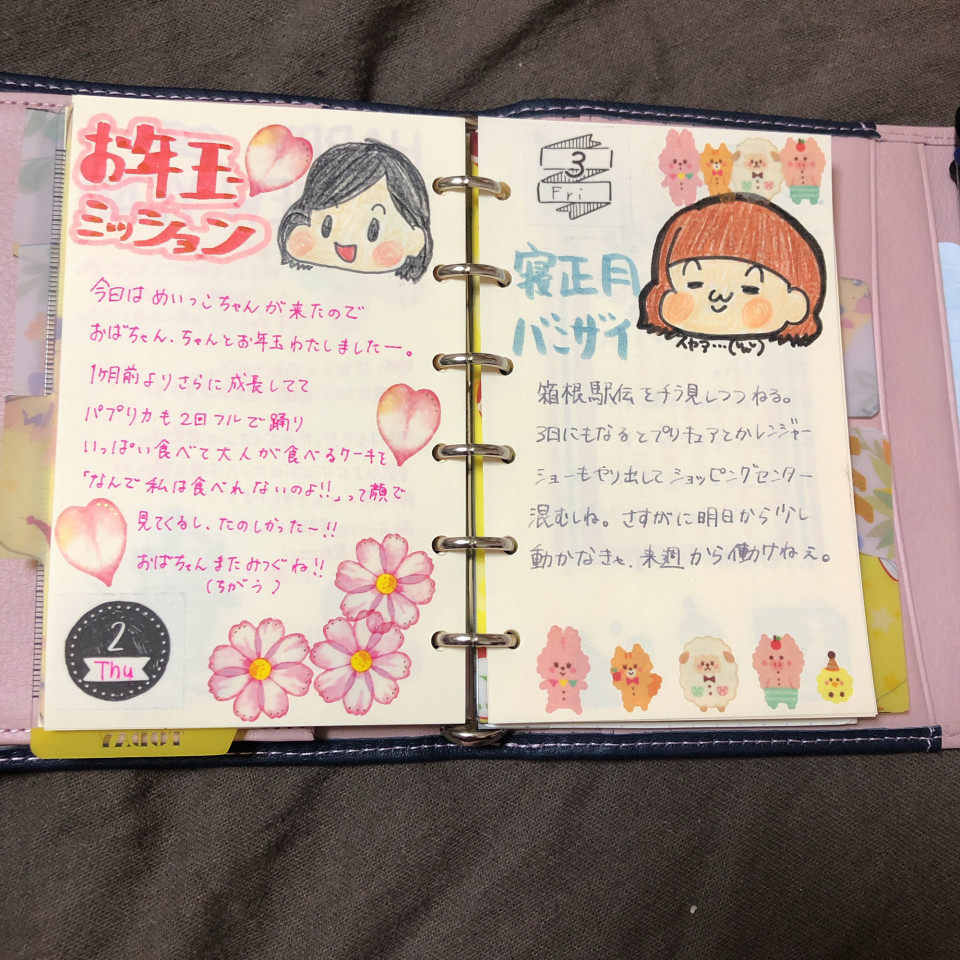 お年玉
ミッション
今日はめいっこちゃんが来たので
おばちゃん、ちゃんとお年玉わたしましたー。
1ヶ月前よりさらに成長してて
パプリカも2回フルで踊り
いっぱい食べて大人が食べるケーキを
「なんで私は食べれないのよ!!」って顔で
見てくるし、たのしかった〜!!
おばちゃんまたみつぐね!!
(ちがう)
2
Thu
TODAY
3
Fri
寝正月
バンザイ
箱根駅伝をチラ見しつつねる。
3日にもなるとプリキュアとかレンジャー
ショーもやり出してショッピングセンター
混むしね。さすがに明日から少し
動かなきゃ、来週から働けねぇ。